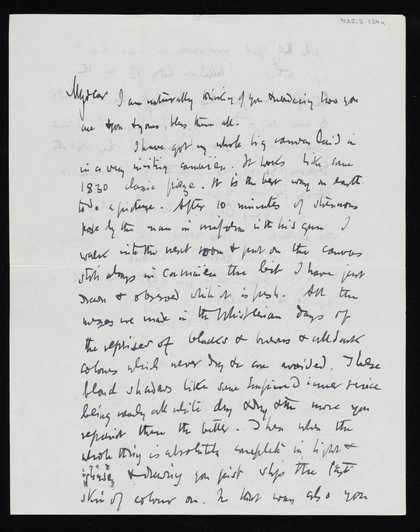 My dear I am naturally thinking of you & wondering how you
are & you & yours, bless them all.
I have got my whole big canvas laid in
in a very inviting camaieu. It looks like some
1830 classic piece. It is the best way on earth
to do a picture. After 10 minutes of strenuous
pose by the man in uniform with his gun I
walk into the next room & put on the canvas
still always in camaieu the bit I have just
drawn & observed while it is fresh. All the
messes we made in the Whistlerian days of
the reprises of blacks & browns & all dark
colours which never dry & are avoided. These
blond shadows like some Empire dinner service
being nearly all white dry & dry & the more you
repaint them the better. Then when the
whole thing is absolutely complete in light &
shade & drawing you just slip the last
skin of colour on. In that way also you